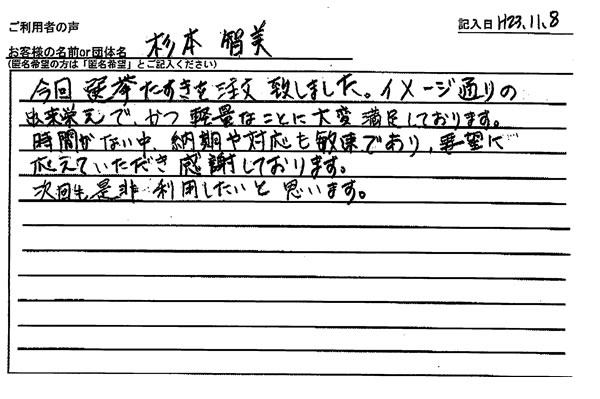 ご利用者の声
記入日 H23.11.8
お客様の名前or団体名 杉本 智美
(匿名希望の方は「匿名希望」とご記入ください)
今回 選挙たすきを注文 致しました。イメージ通りの
出来栄えで、かつ軽量なことに大変満足しております。
時間がない中、納期や対応も敏速であり、要望に
応えていただき感謝しております。
次回も是非 利用したいと思います。